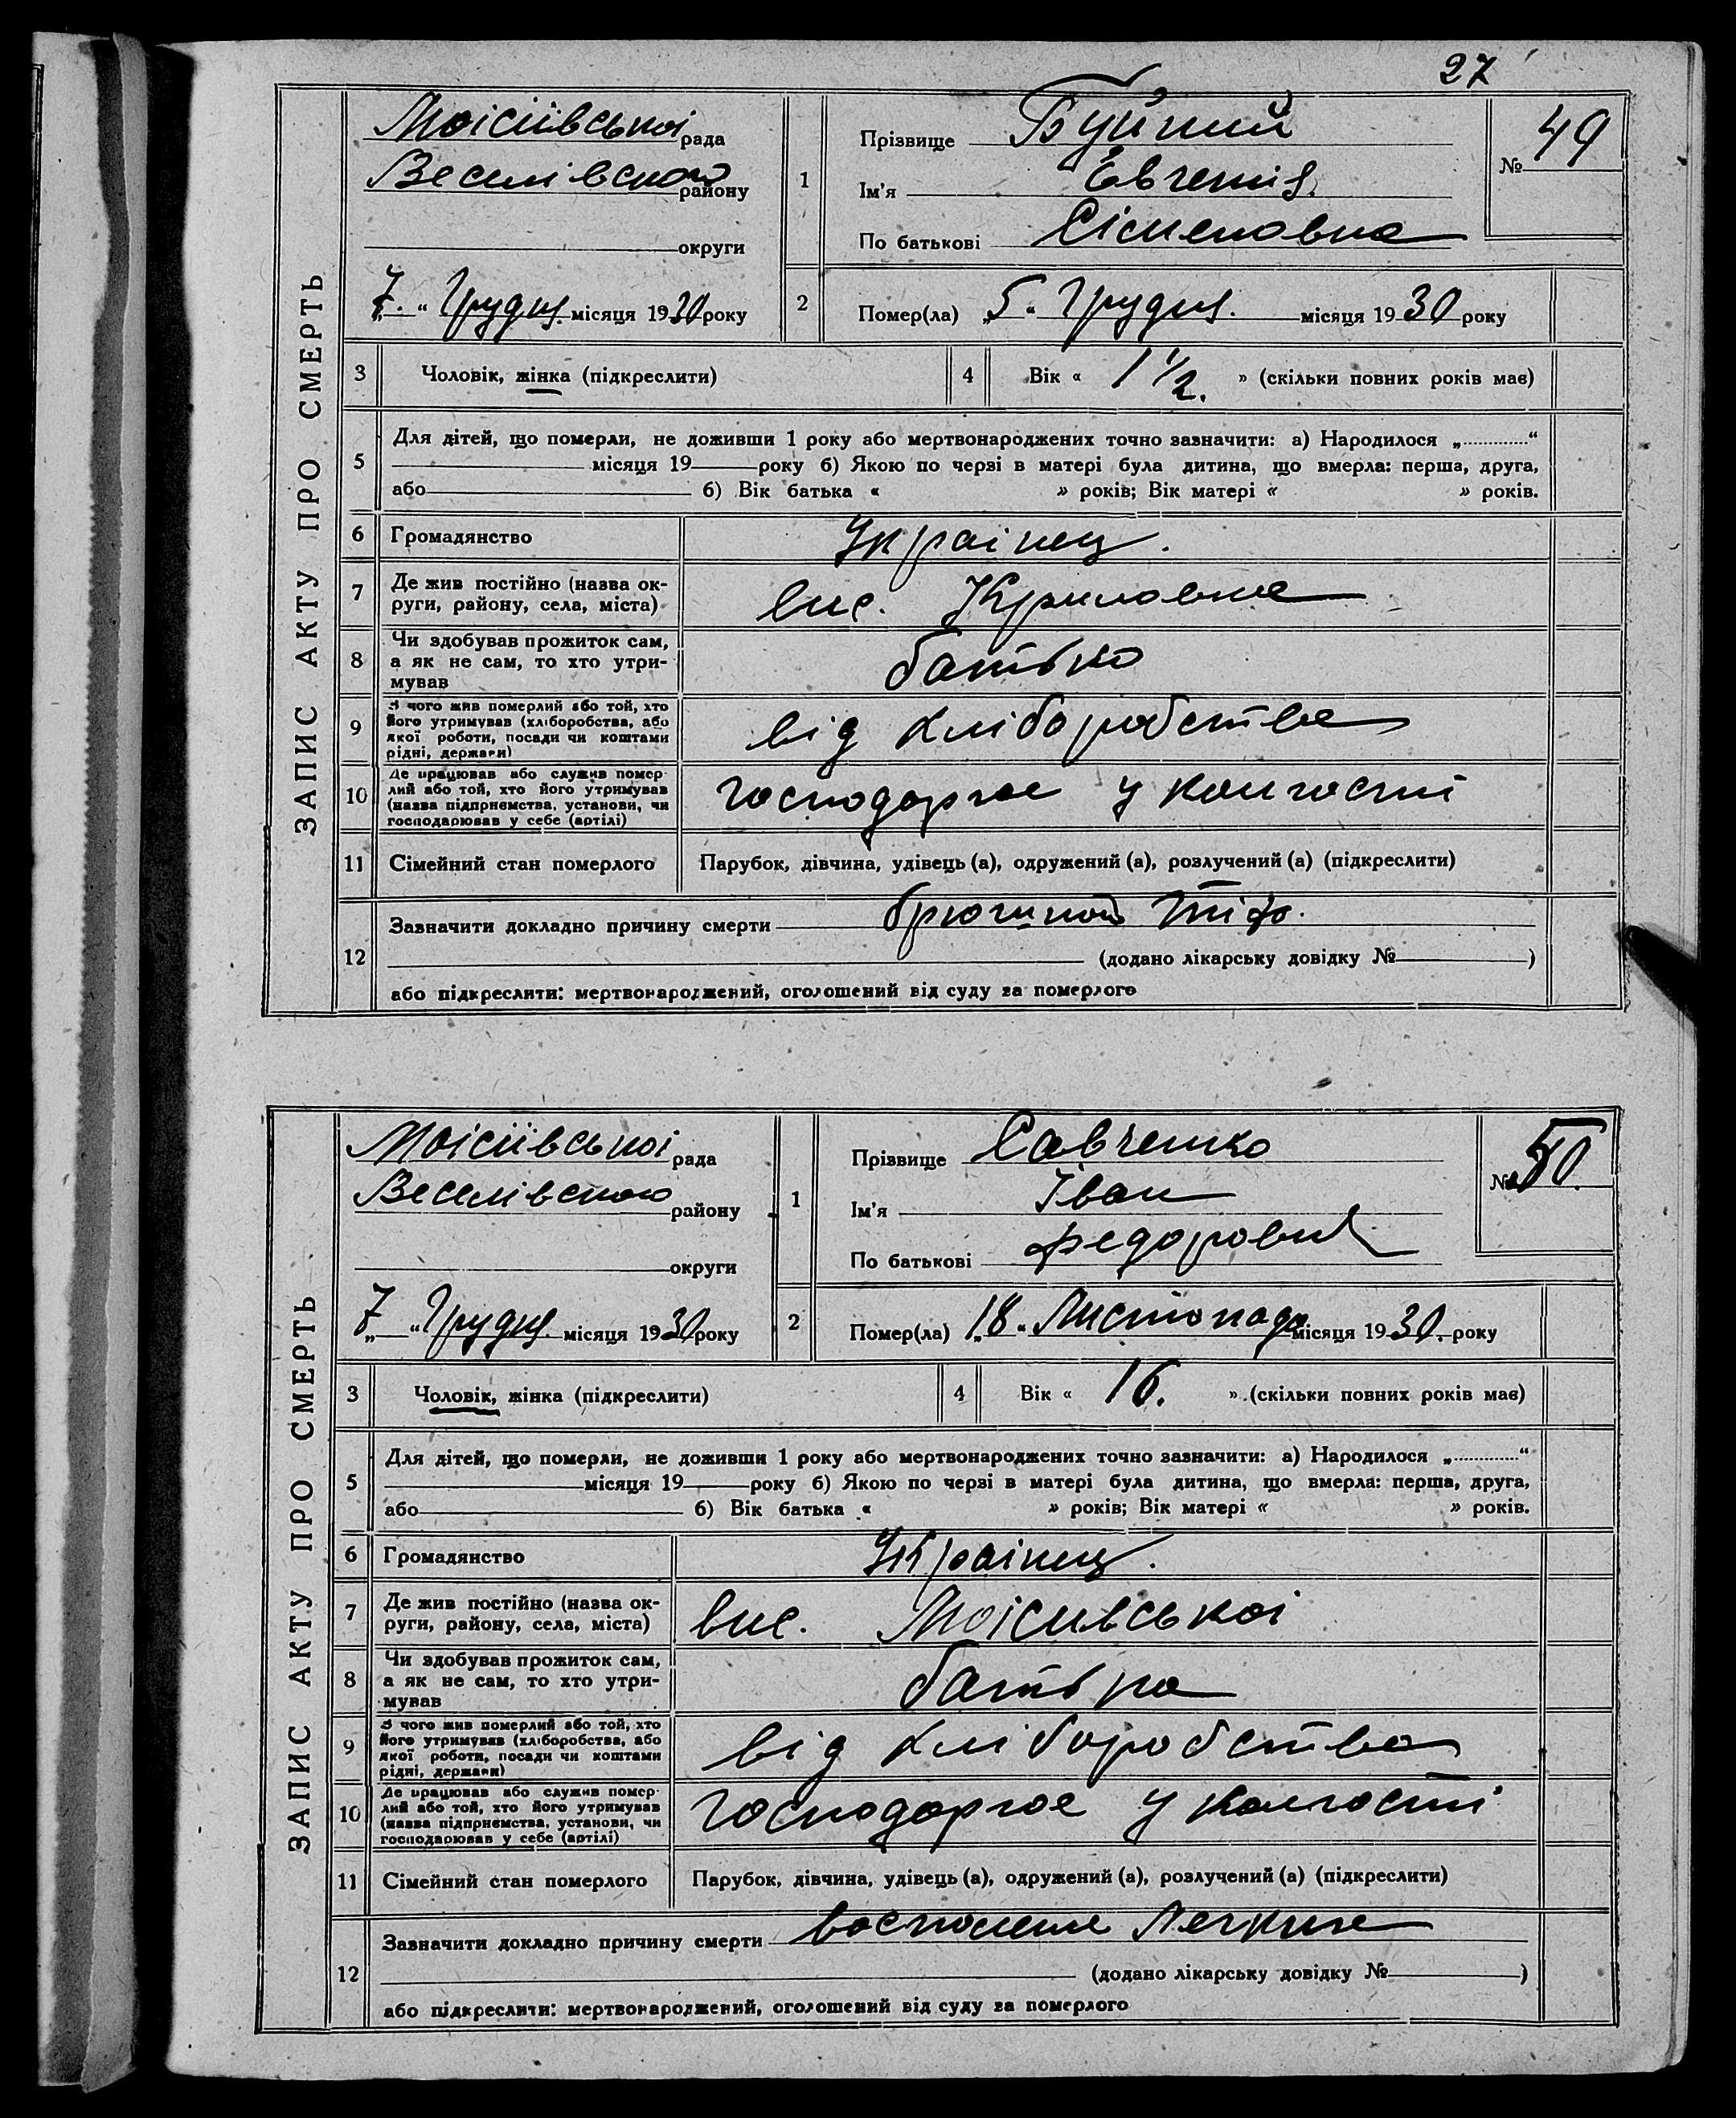 27
ЗАПИС АКТУ ПРО СМЕРТЬ
Моісіївської рада
Веселівського району
округи
„7.“ Грудня. місяця 1930 року
1
Прізвище Буйний
Ім'я Евгенія.
По батькові Сіменовна
№ 49
2
Помер(ла) „5“ Грудня. місяця 1930 року
3 Чоловік, жінка (підкреслити)
4 Вік « 1 1/2. » (скільки повних років має)
5 Для дітей, що померли, не доживши 1 року або мертвонароджених точно зазначити: а) Народилося „............“
місяця 19 року б) Якою по черзі в матері була дитина, що вмерла: перша, друга,
або б) Вік батька « » років; Вік матері « » років.
6 Громадянство Українец.
7 Де жив постійно (назва ок-
руги, району, села, міста)
вис. Криловка
8 Чи здобував прожиток сам,
а як не сам, то хто утри-
мував
батько
9 З чого жив померлий або той, хто
його утримував (хліборобства, або
якої роботи, посади чи коштами
рідні, держави)
від хліборобства
10 Де працював або служив помер-
лий або той, хто його утримував
(назва підприємства, установи, чи
господарював у себе (артілі)
господарює у колгоспі
11 Сімейний стан померлого Парубок, дівчина, удівець (а), одружений (а), розлучений (а) (підкреслити)
12 Зазначити докладно причину смерти брюшной тіф.
(додано лікарську довідку № )
або підкреслити: мертвонароджений, оголошений від суду за померлого
ЗАПИС АКТУ ПРО СМЕРТЬ
Моісіївської рада
Веселівского району
округи
„7“ Грудня. місяця 1930 року
1
Прізвище Савченко
Ім'я Іван
По батькові Федорович
№ 50.
2
Помер(ла) „18“ Листопада місяця 1930. року
3 Чоловік, жінка (підкреслити)
4 Вік « 16. » (скільки повних років має)
5 Для дітей, що померли, не доживши 1 року або мертвонароджених точно зазначити: а) Народилося „............“
місяця 19 року б) Якою по черзі в матері була дитина, що вмерла: перша, друга,
або б) Вік батька « » років; Вік матері « » років.
6 Громадянство Українец.
7 Де жив постійно (назва ок-
руги, району, села, міста)
вис. Моісивської
8 Чи здобував прожиток сам,
а як не сам, то хто утри-
мував
батька
9 З чого жив померлий або той, хто
його утримував (хліборобства, або
якої роботи, посади чи коштами
рідні, держави)
від хліборобства
10 Де працював або служив помер-
лий або той, хто його утримував
(назва підприємства, установи, чи
господарював у себе (артілі)
господарює у колгоспі
11 Сімейний стан померлого Парубок, дівчина, удівець (а), одружений (а), розлучений (а) (підкреслити)
12 Зазначити докладно причину смерти восполение Легких
(додано лікарську довідку № )
або підкреслити: мертвонароджений, оголошений від суду за померлого